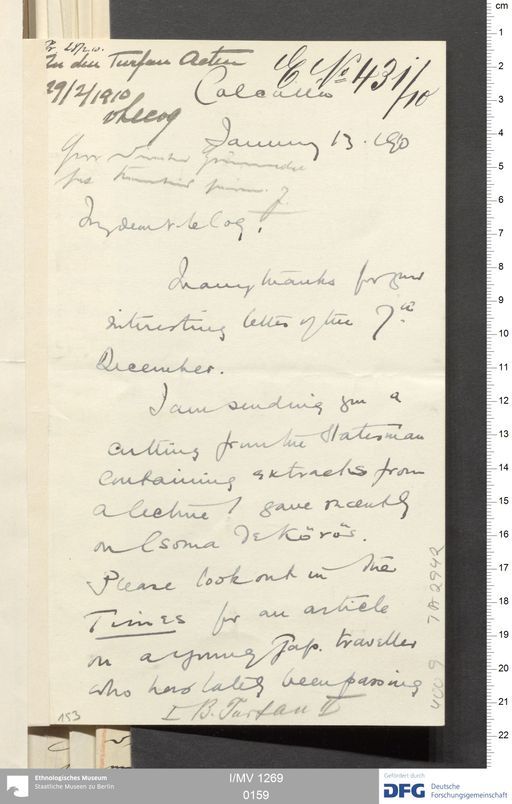 28/2.10.
Zu den Turfan Acten
29/2/1910
vLecoq
E No 431/10
Calcutta
January 13. 1910
My dear v. le Coq,
Many thanks for your
interesting letter of the 7th
December.
I am sending you a
cutting from the Statesman
containing extracts from
a lecture I gave recently
on Csoma de Körös.
Please look out in the
Times for an article
on a young Jap. traveller
who has lately been passing
I B. Turfan II
153
TA 2942
I/MV 1269
0159
Ethnologisches Museum
Staatliche Museen zu Berlin
Gefördert durch
DFG
Deutsche
Forschungsgemeinschaft
cm
1
2
3
4
5
6
7
8
9
10
11
12
13
14
15
16
17
18
19
20
21
22